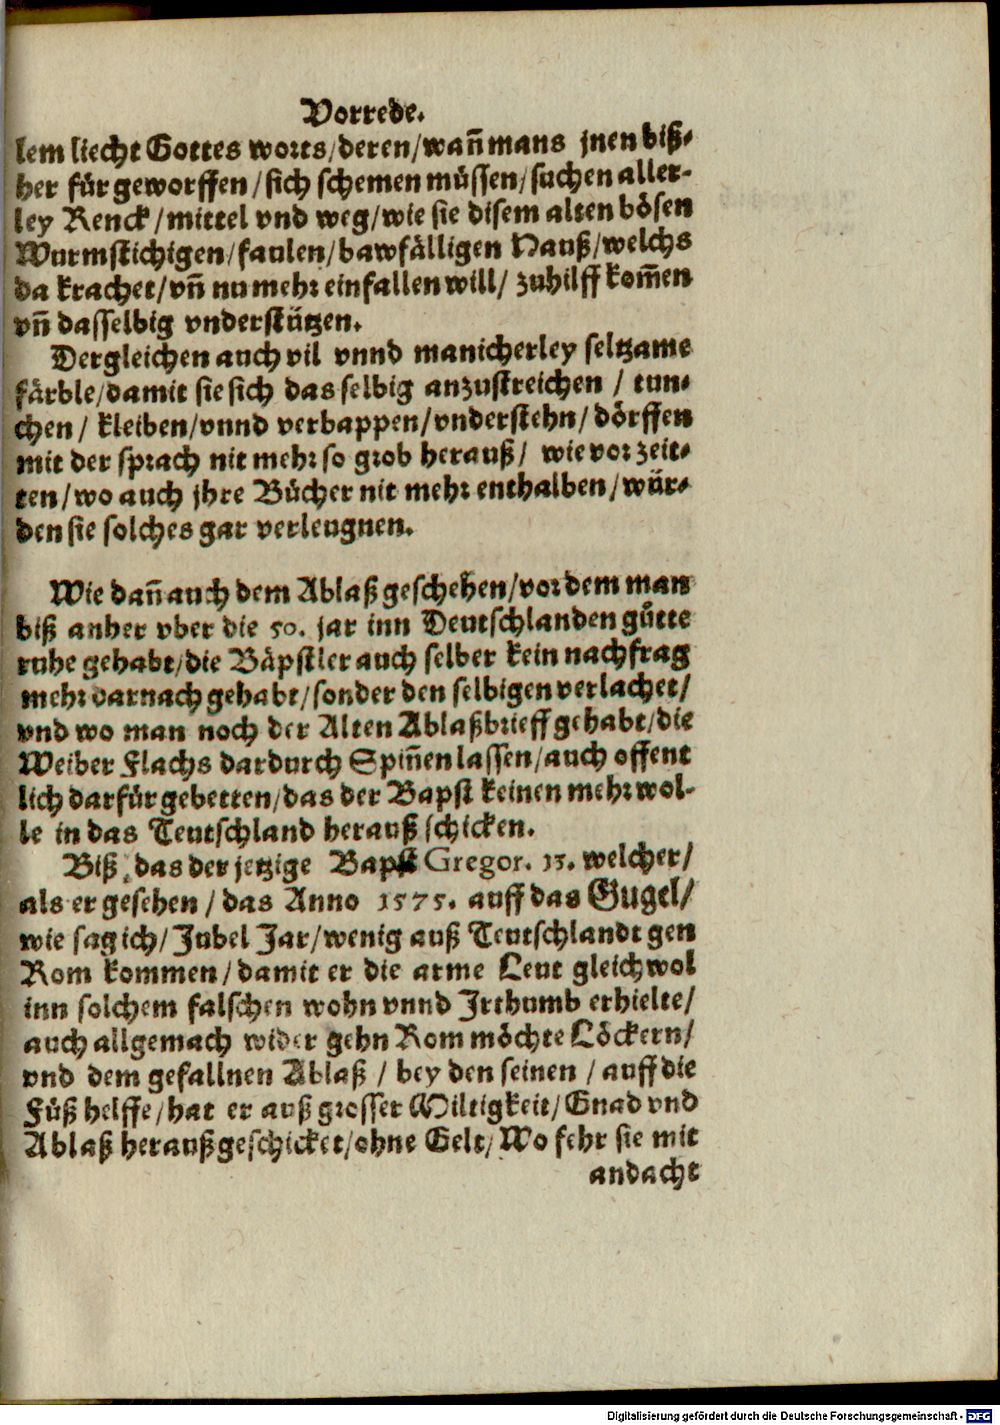 Vorrede.
lem liecht Gottes worts/deren/wan̄ mans jnen biß-
her für geworffen/sich schemen müssen/suchen aller-
ley Renck/mittel vnd weg/wie sie disem alten bösen
Wurmstichigen/faulen/bawfälligen Hauß/welchs
da krachet/vn̄ nu mehr einfallen will/ zuhilff kom̄en
vn̄ dasselbig vnderstützen.
Dergleichen auch vil vnnd manicherley seltzame
färble/damit sie sich das selbig anzustreichen / tun-
chen/ kleiben/vnnd verbappen/vnderstehn/dörffen
mit der sprach nit mehr so grob herauß/ wie vor zeit-
ten/wo auch jhre Bücher nit mehr enthalben/wür-
den sie solches gar verleugnen.
Wie dan̄ auch dem Ablaß geschehen/vor dem man
biß anher vber die 50. jar inn Deutschlanden gůtte
ruhe gehabt/die Bäpstler auch selber kein nachfrag
mehr darnach gehabt/sonder den selbigen verlachet/
vnd wo man noch der Alten Ablaßbrieff gehabt/die
Weiber Flachs dardurch Spin̄en lassen/auch offent
lich darfür gebetten/das der Bapst keinen mehr wol-
le in das Teutschland herauß schicken.
Biß das der jetzige Bapst Gregor. 13. welcher/
als er gesehen / das Anno 1575. auff das Gugel/
wie sag ich/Jubel Jar/wenig auß Teutschlandt gen
Rom kommen/damit er die arme Leut gleichwol
inn solchem falschen wohn vnnd Irthumb erhielte/
auch allgemach wider gehn Rom möchte Löckern/
vnd dem gefallnen Ablaß / bey den seinen / auff die
Füß helffe/hat er auß grosser Miltigkeit/Gnad vnd
Ablaß heraußgeschicket/ohne Gelt/Wo fehr sie mit
andacht
Digitalisierung gefördert durch die Deutsche Forschungsgemeinschaft - DFG